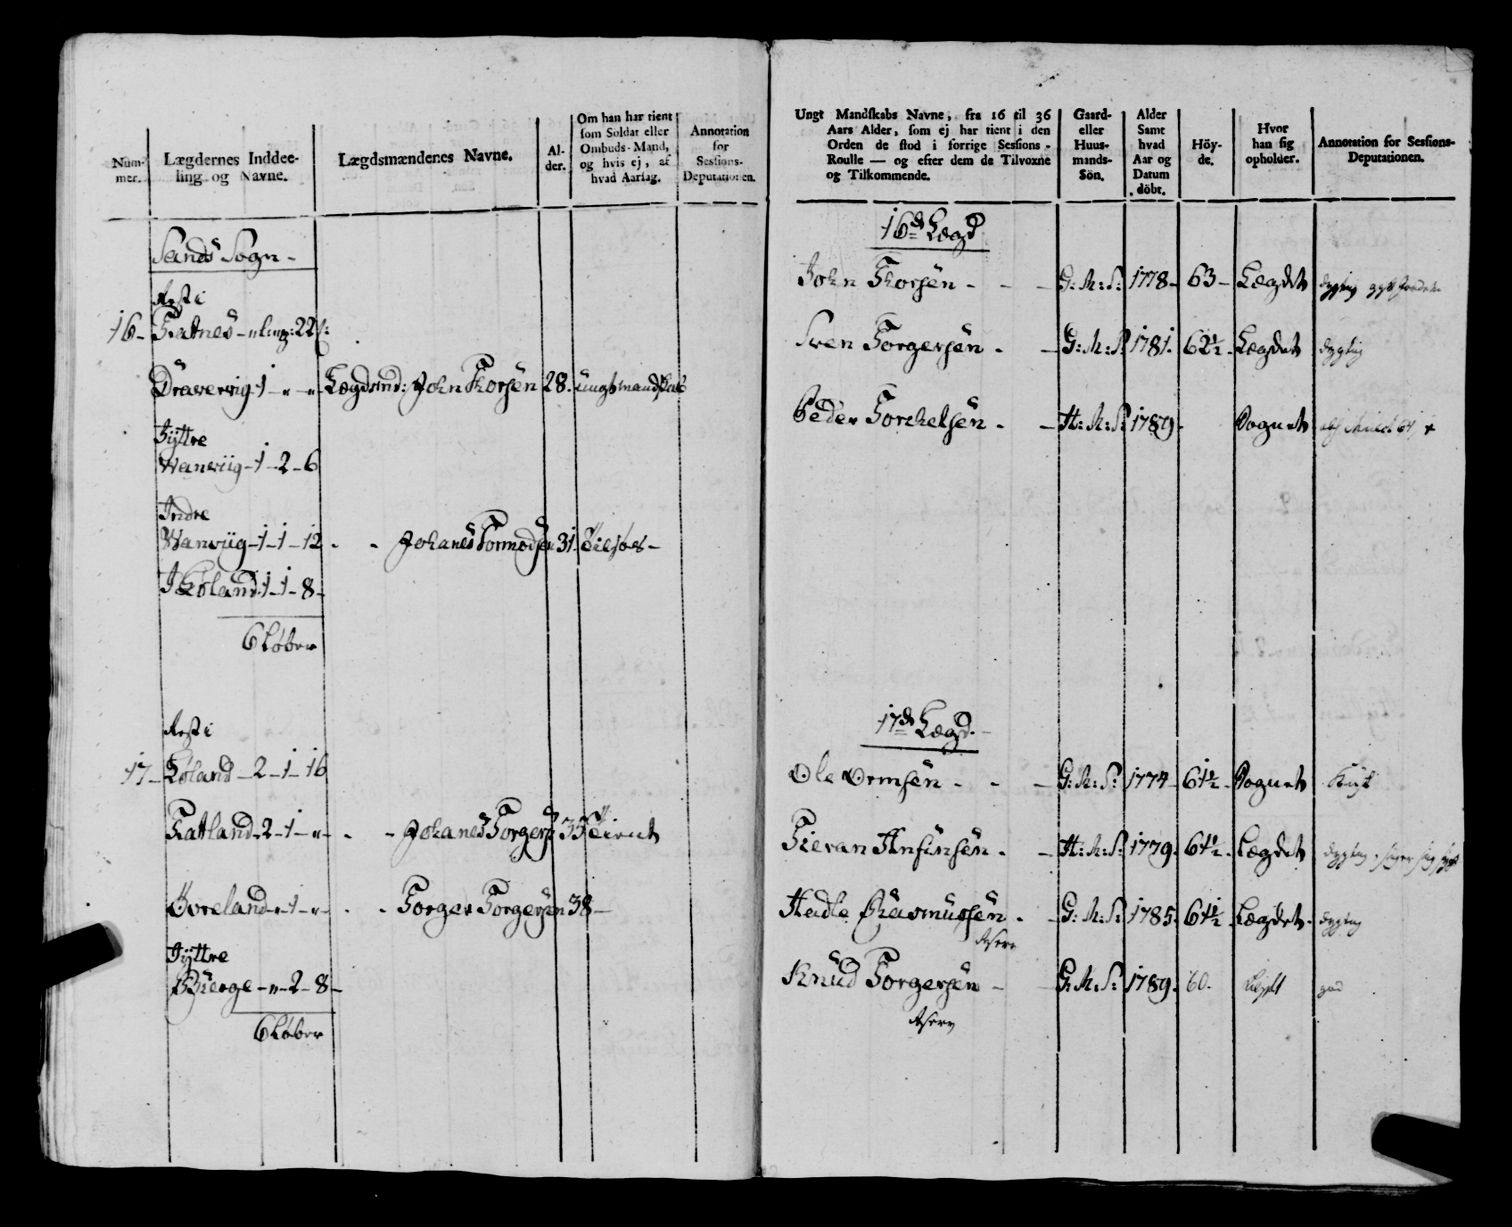 Num-
mer.
Lægdernes Inddee-
ling og Navne.
Lægdsmændenes Navne.
Al-
der.
Om han har tient
som Soldat eller
Ombuds-Mand,
og hvis ej, af
hvad Aarsag.
Annotation
for
Sessions-
Deputationen.
Sands Sogn -
Rest i
16 - Fatnes -
Dravevig - 1 - " - " - Lægdsmd: John Thorsen 28. ungt mandskab
Jÿttre
Wanviig - 1 - 2 - 6
Indre
Wanviig - 1 - 1 - 12 - - Johanes Tormodsen 31
Øland 1 - 1 - 8 -
6 Løber
Rest i
17 - Øland - 2 - 1 - 16
Fatland - 2 - 1 - " - - - Johanes Torgers 35 Tient
Hoveland - " - 1 - " - - - Torger Torgersen 38 -
Jÿttre
Bierge - " - 2 - 8 -
6 Løber
Ungt Mandskabs Navne, fra 16 til 36
Aars Alder, som ej har tient i den
Orden de stod i forrige Sessions-
Roulle — og efter dem de Tilvoxne
og Tilkommende.
Gaard-
eller
Huus-
mands-
Sön.
Alder
Samt
hvad
Aar og
Datum
döbt.
Höy-
de.
Hvor
han sig
opholder.
Annotation for Sessions-
Deputationen.
16de Lægd
John Thorsen - - - G: M: S: 1778 - 63 - Lægdet dygtig
Sven Torgersen - - G: M: S: 1781. 62½ - Lægdet dygtig
Peder Torchelsen - - H: M: S: 1789 - Sognet
17de Lægd.
Ole Ormsen - - - G: M: S: 1774 - 61½ - Sognet
Tieran Anfinsen - - H: M: S: 1779. 61½ - Lægdet dygtig
Heidle Rasmussen - - G: M: S: 1785. 61½ Lægdet - dygtig
Reserv
Knud Torgersen - G: M: S: 1789. 60. god
Reserv